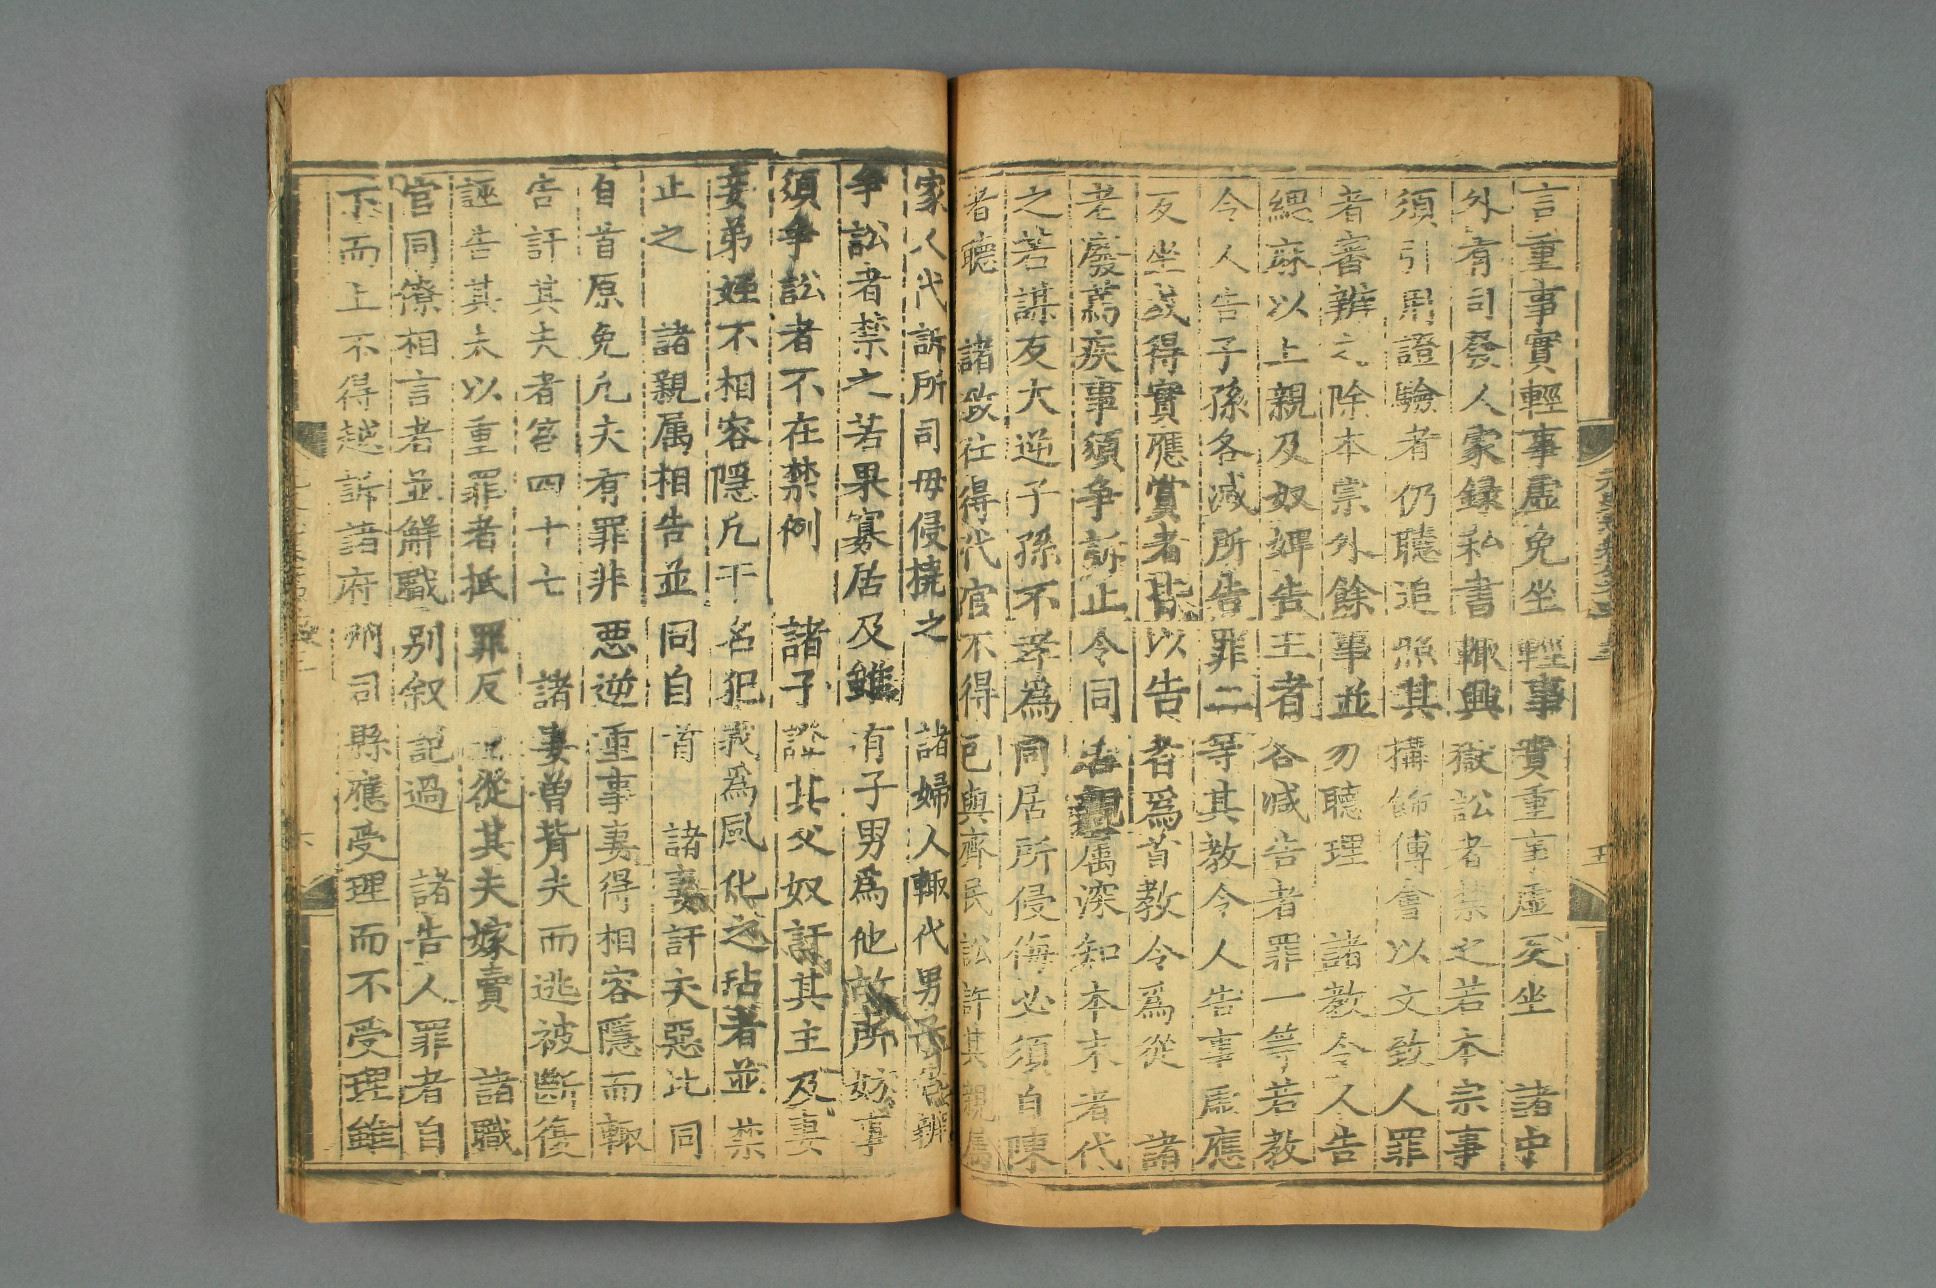 言重事實輕事虛免坐輕事實重事虛反坐　諸中
外有司發人家録私書輒興獄訟者禁之若本宗事
須引用證驗者仍聽追照其搆飾傅會以文致人罪
者審辨之除本宗外餘事並勿聽理　諸教令人告
緦麻以上親及奴婢告主者各减告者罪一等若教
令人告子孫各减所告罪二等其教令人告事虛應
反坐或得實應賞者皆以告者爲首教令爲從　諸
老廢篤疾事須争訴止令同居親属深知本末者代
之若謀反大逆子孫不孝爲同居所侵侮必須自陳
者聽　諸致仕得代官不得已與齊民訟許其親属
家人代訴所司毋侵撓之　諸婦人輒代男子告辨
争訟者禁之若果寡居及雖有子男爲他故所妨事
須争訟者不在禁例　諸子證其父奴訐其主及妻
妾弟姪不相容隱凡干名犯義爲風化之玷者並禁
止之　諸親属相告並同自首　諸妻訐夫惡比同
自首原免凡夫有罪非悪逆重事妻得相容隱而輒
告訐其夫者笞四十七　諸妻曾背夫而逃被斷復
誣告其夫以重罪者抵罪反坐從其夫嫁賣　諸職
官同僚相言者並解職别叙記過　諸告人罪者自
下而上不得越訴諸府州司縣應受理而不受理雖
五
六